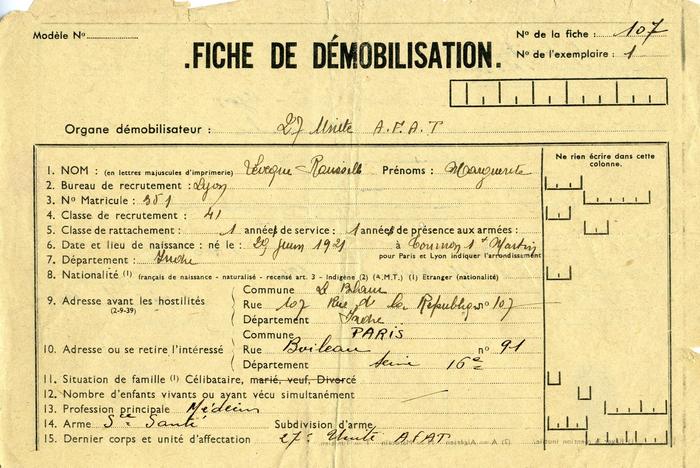 Modèle Nº
Nº de la fiche : 107
Nº de l'exemplaire : 1
.FICHE DE DÉMOBILISATION.
Organe démobilisateur : 27 Unité A.F.A.T
Ne rien écrire dans cette colonne.
1. NOM : (en lettres majuscules d'imprimerie) Lévêque-Rousselle Prénoms : Marguerite
2. Bureau de recrutement : Lyon
3. Nº Matricule : 381
4. Classe de recrutement : 41
5. Classe de rattachement : 1 années de service : 1 années de présence aux armées :
6. Date et lieu de naissance : né le : 29 Juin 1921 à Tournon St Martin
pour Paris et Lyon indiquer l'arrondissement
7. Département : Indre
8. Nationalité (1) (français de naissance - naturalisé - recensé art. 3 - Indigène (2) (A.M.T.) (1) Etranger (nationalité)
9. Adresse avant les hostilités (2-9-39)
Commune Le Blanc
Rue 107 Rue de la République nº 107
Département Indre
10. Adresse ou se retire l'intéressé
Commune PARIS
Rue Boileau nº 91
Département Seine 16e
11. Situation de famille (1) Célibataire, marié, veuf, Divorcé
12. Nombre d'enfants vivants ou ayant vécu simultanément
13. Profession principale Médecin
14. Arme Sce Santé Subdivision d'arme
15. Dernier corps et unité d'affectation 27e Unité AFAT